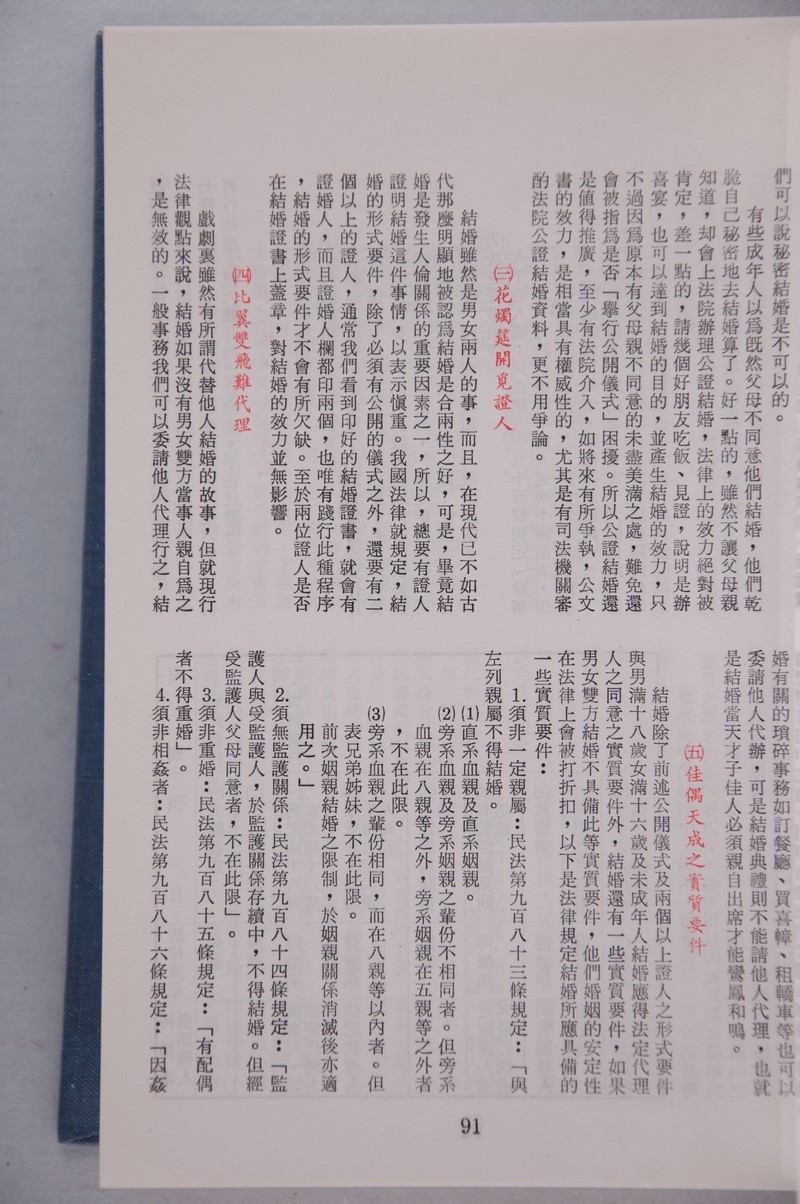 們可以說秘密結婚是不可以的。
有些成年人以為既然父母不同意他們結婚，他們乾
脆自己秘密地去結婚算了。好一點的，雖然不讓父母親
知道，却會上法院辦理公證結婚，法律上的效力絕對被
肯定，差一點的，請幾個好朋友吃飯、見證，說明是辦
喜宴，也可以達到結婚的目的，並產生結婚的效力，只
不過因為原本有父母親不同意的未盡美滿之處，難免還
會被指為是否「擧行公開儀式」困擾。所以公證結婚還
是值得推廣，至少有法院介入，如將來有所爭執，公文
書的效力，是相當具有權威性的，尤其是有司法機關審
酌法院公證結婚資料，更不用爭論。
㈢花燭筵開覓證人
結婚雖然是男女兩人的事，而且，在現代已不如古
代那麼明顯地被認為結婚是合兩性之好，可是，畢竟結
婚是發生人倫關係的重要因素之一，所以，總要有證人
證明結婚這件事情，以表示愼重。我國法律就規定，結
婚的形式要件，除了必須有公開的儀式之外，還要有二
個以上的證人，通常我們看到印好的結婚證書，就會有
證婚人，而且證婚人欄都印兩個，也唯有踐行此種程序
，結婚的形式要件才不會有所欠缺。至於兩位證人是否
在結婚證書上蓋章，對結婚的效力並無影響。
㈣比翼雙飛難代理
戲劇裏雖然有所謂代替他人結婚的故事，但就現行
法律觀點來說，結婚如果沒有男女雙方當事人親自為之
，是無效的。一般事務我們可以委請他人代理行之，結
婚有關的瑣碎事務如訂餐廳、買喜幛、租轎車等也可以
委請他人代辦，可是結婚典禮則不能請他人代理，也就
是結婚當天才子佳人必須親自出席才能鸞鳳和鳴。
㈤佳偶天成之實質要件
結婚除了前述公開儀式及兩個以上證人之形式要件
與男滿十八歲女滿十六歲及未成年人結婚應得法定代理
人之同意之實質要件外，結婚還有一些實質要件，如果
男女雙方結婚不具備此等實質要件，他們婚姻的安定性
在法律上會被打折扣，以下是法律規定結婚所應具備的
一些實質要件：
1.須非一定親屬：民法第九百八十三條規定：「與
左列親屬不得結婚。
⑴直系血親及直系姻親。
⑵旁系血親及旁系姻親之輩份不相同者。但旁系
血親在八親等之外，旁系姻親在五親等之外者
，不在此限。
⑶旁系血親之輩份相同，而在八親等以內者。但
表兄弟姊妹，不在此限。
前次姻親結婚之限制，於姻親關係消滅後亦適
用之。」
2.須無監護關係：民法第九百八十四條規定：「監
護人與受監護人，於監護關係存續中，不得結婚。但經
受監護人父母同意者，不在此限」。
3.須非重婚：民法第九百八十五條規定：「有配偶
者不得重婚」。
4.須非相姦者：民法第九百八十六條規定：「因姦
91